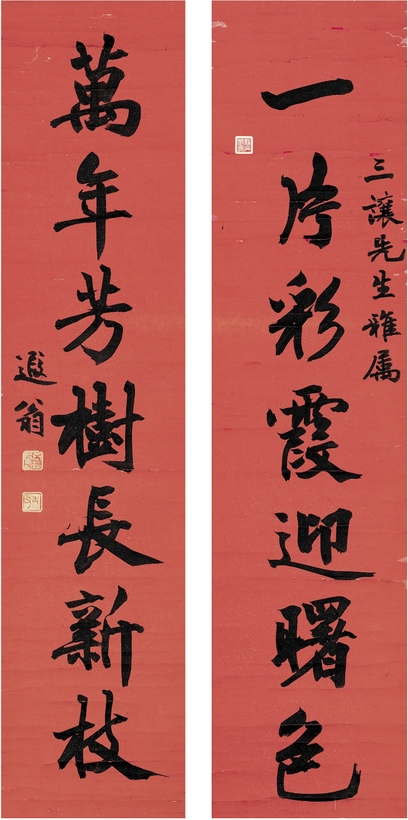 三讓先生雅属
一片彩霞迎曙色
萬年芳樹長新枝
遐翁